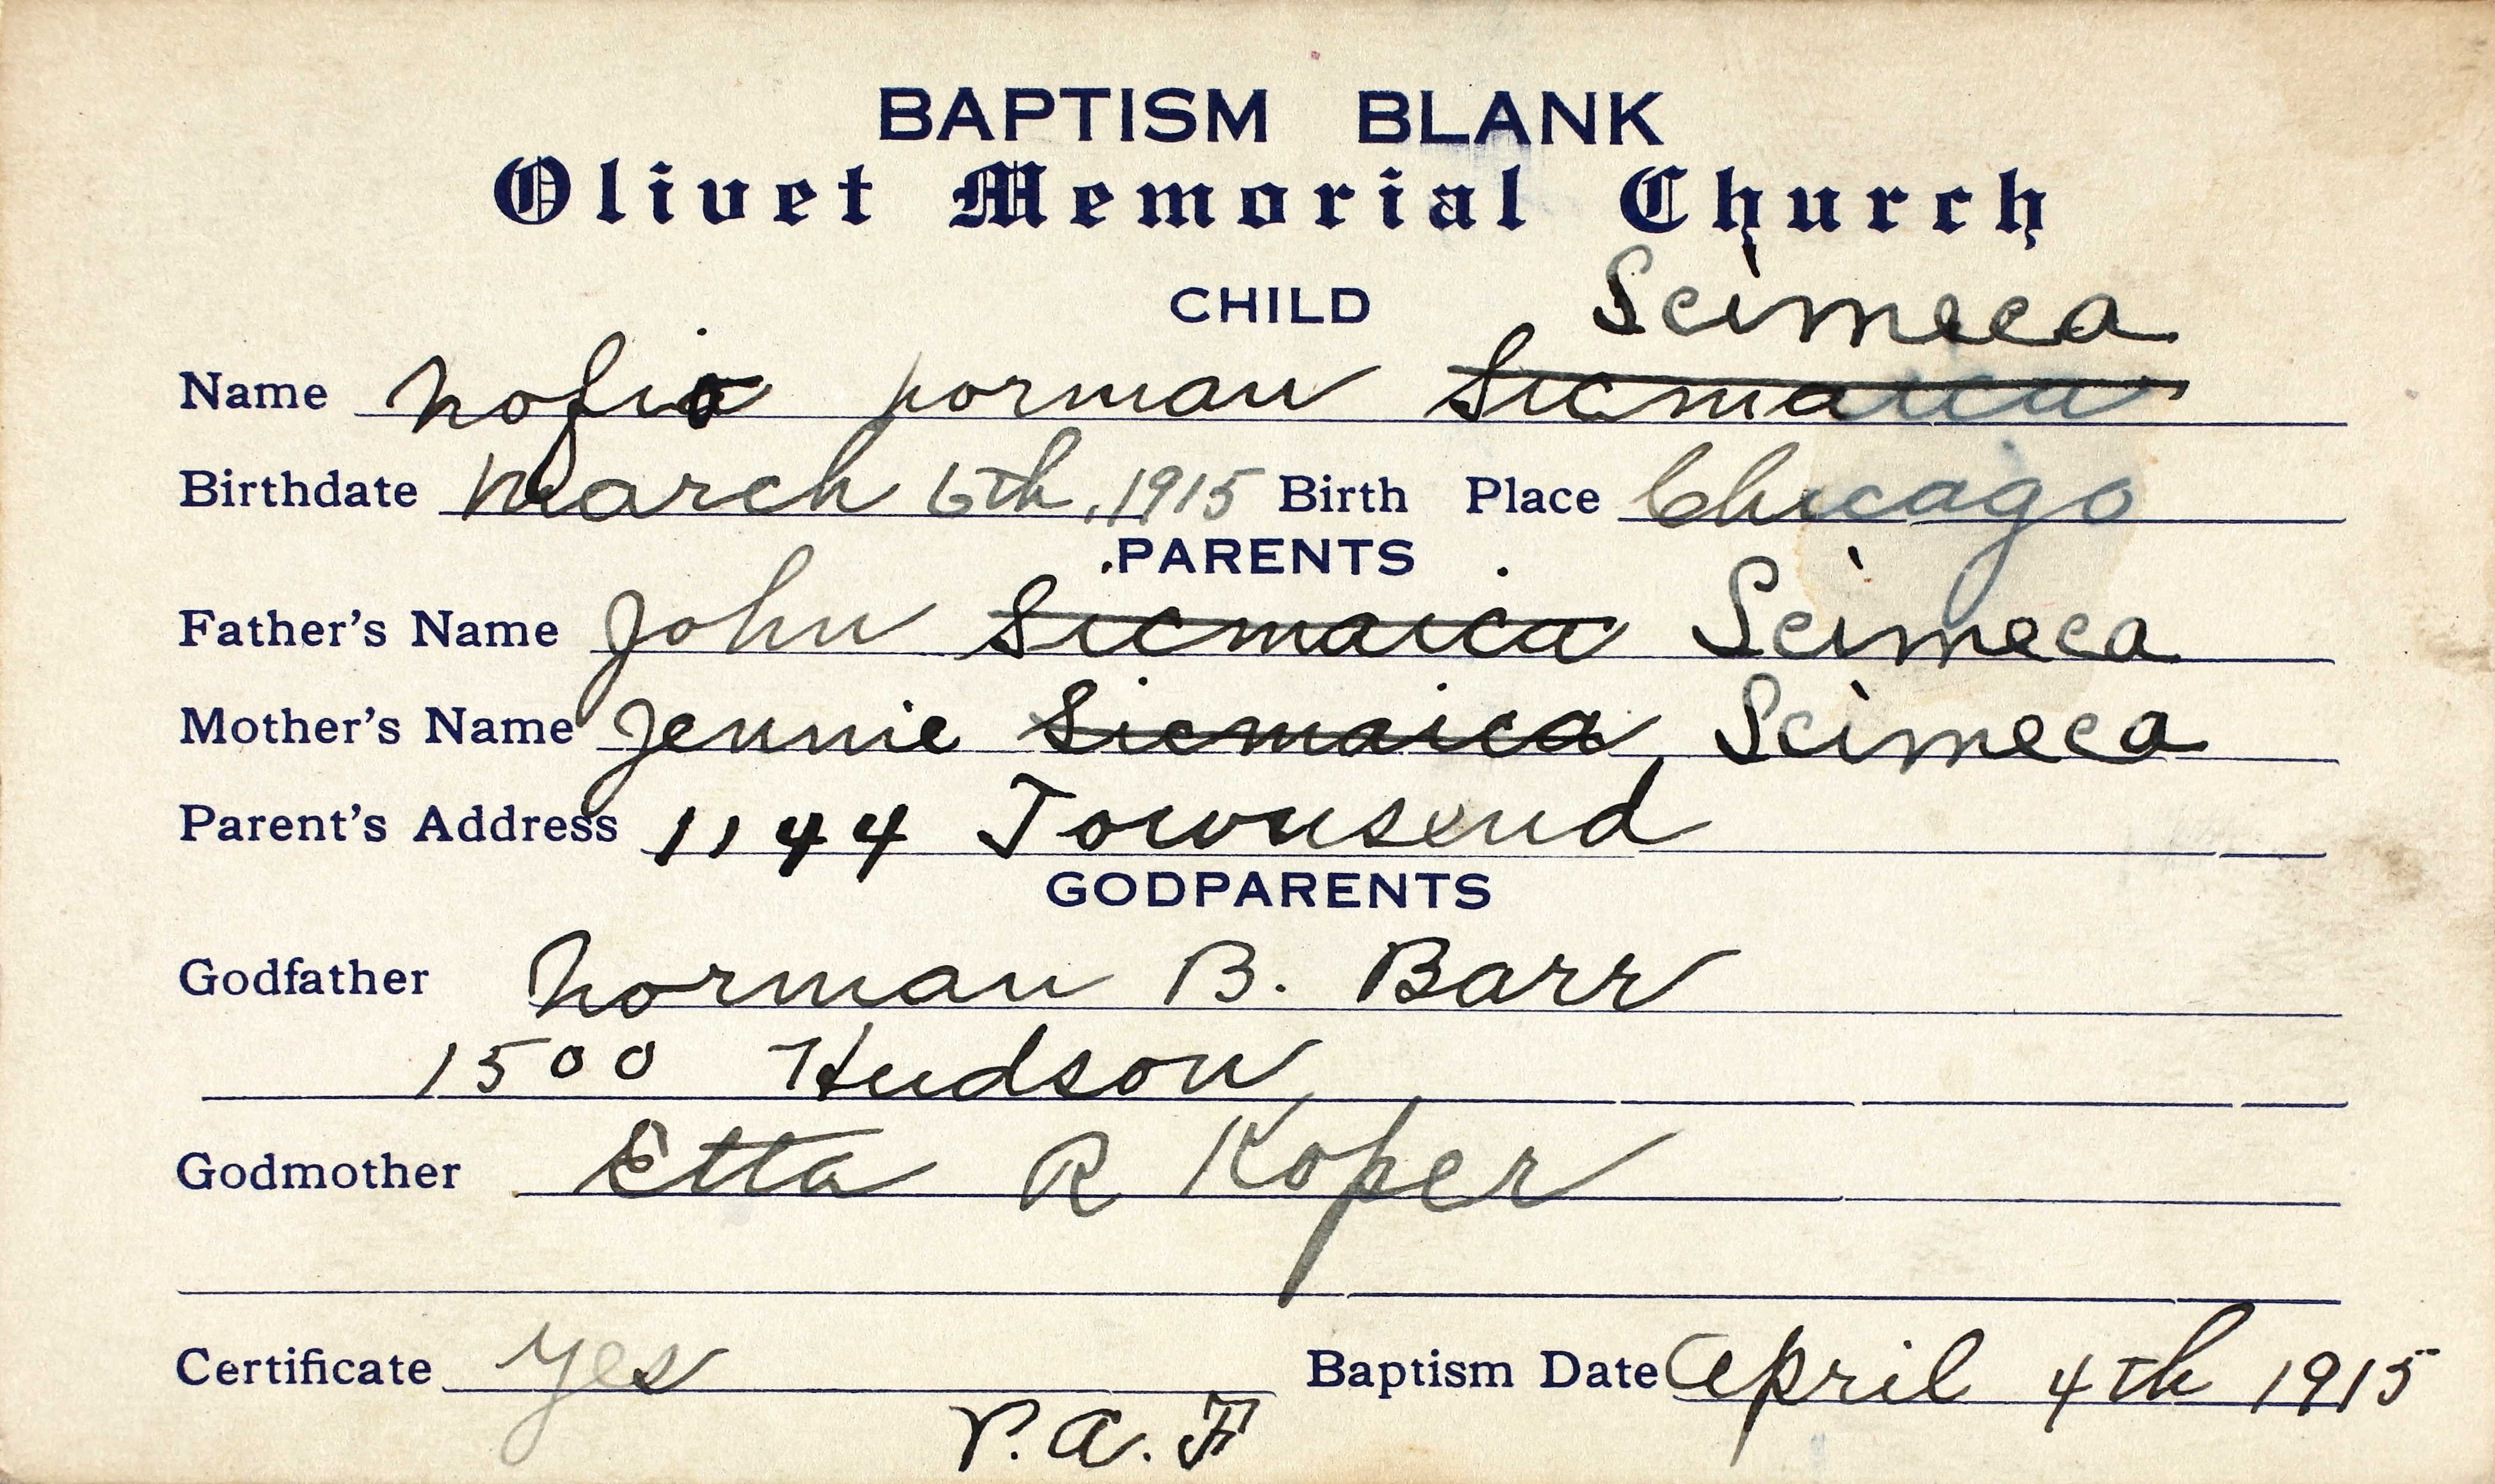 BAPTISM BLANK
Olivet Memorial Church
CHILD Scimeca
Name Nofio Norman Sicmaica
Birthdate March 6th, 1915 Birth Place Chicago
PARENTS
Father's Name John Sicmaica Scimeca
Mother's Name Jennie Sicmaica Scimeca
Parent's Address 1144 Townsend
GODPARENTS
Godfather Norman B. Barr
1500 Hudson
Godmother Etta R Koper
Certificate yes Baptism Date April 4th 1915
V.A.F